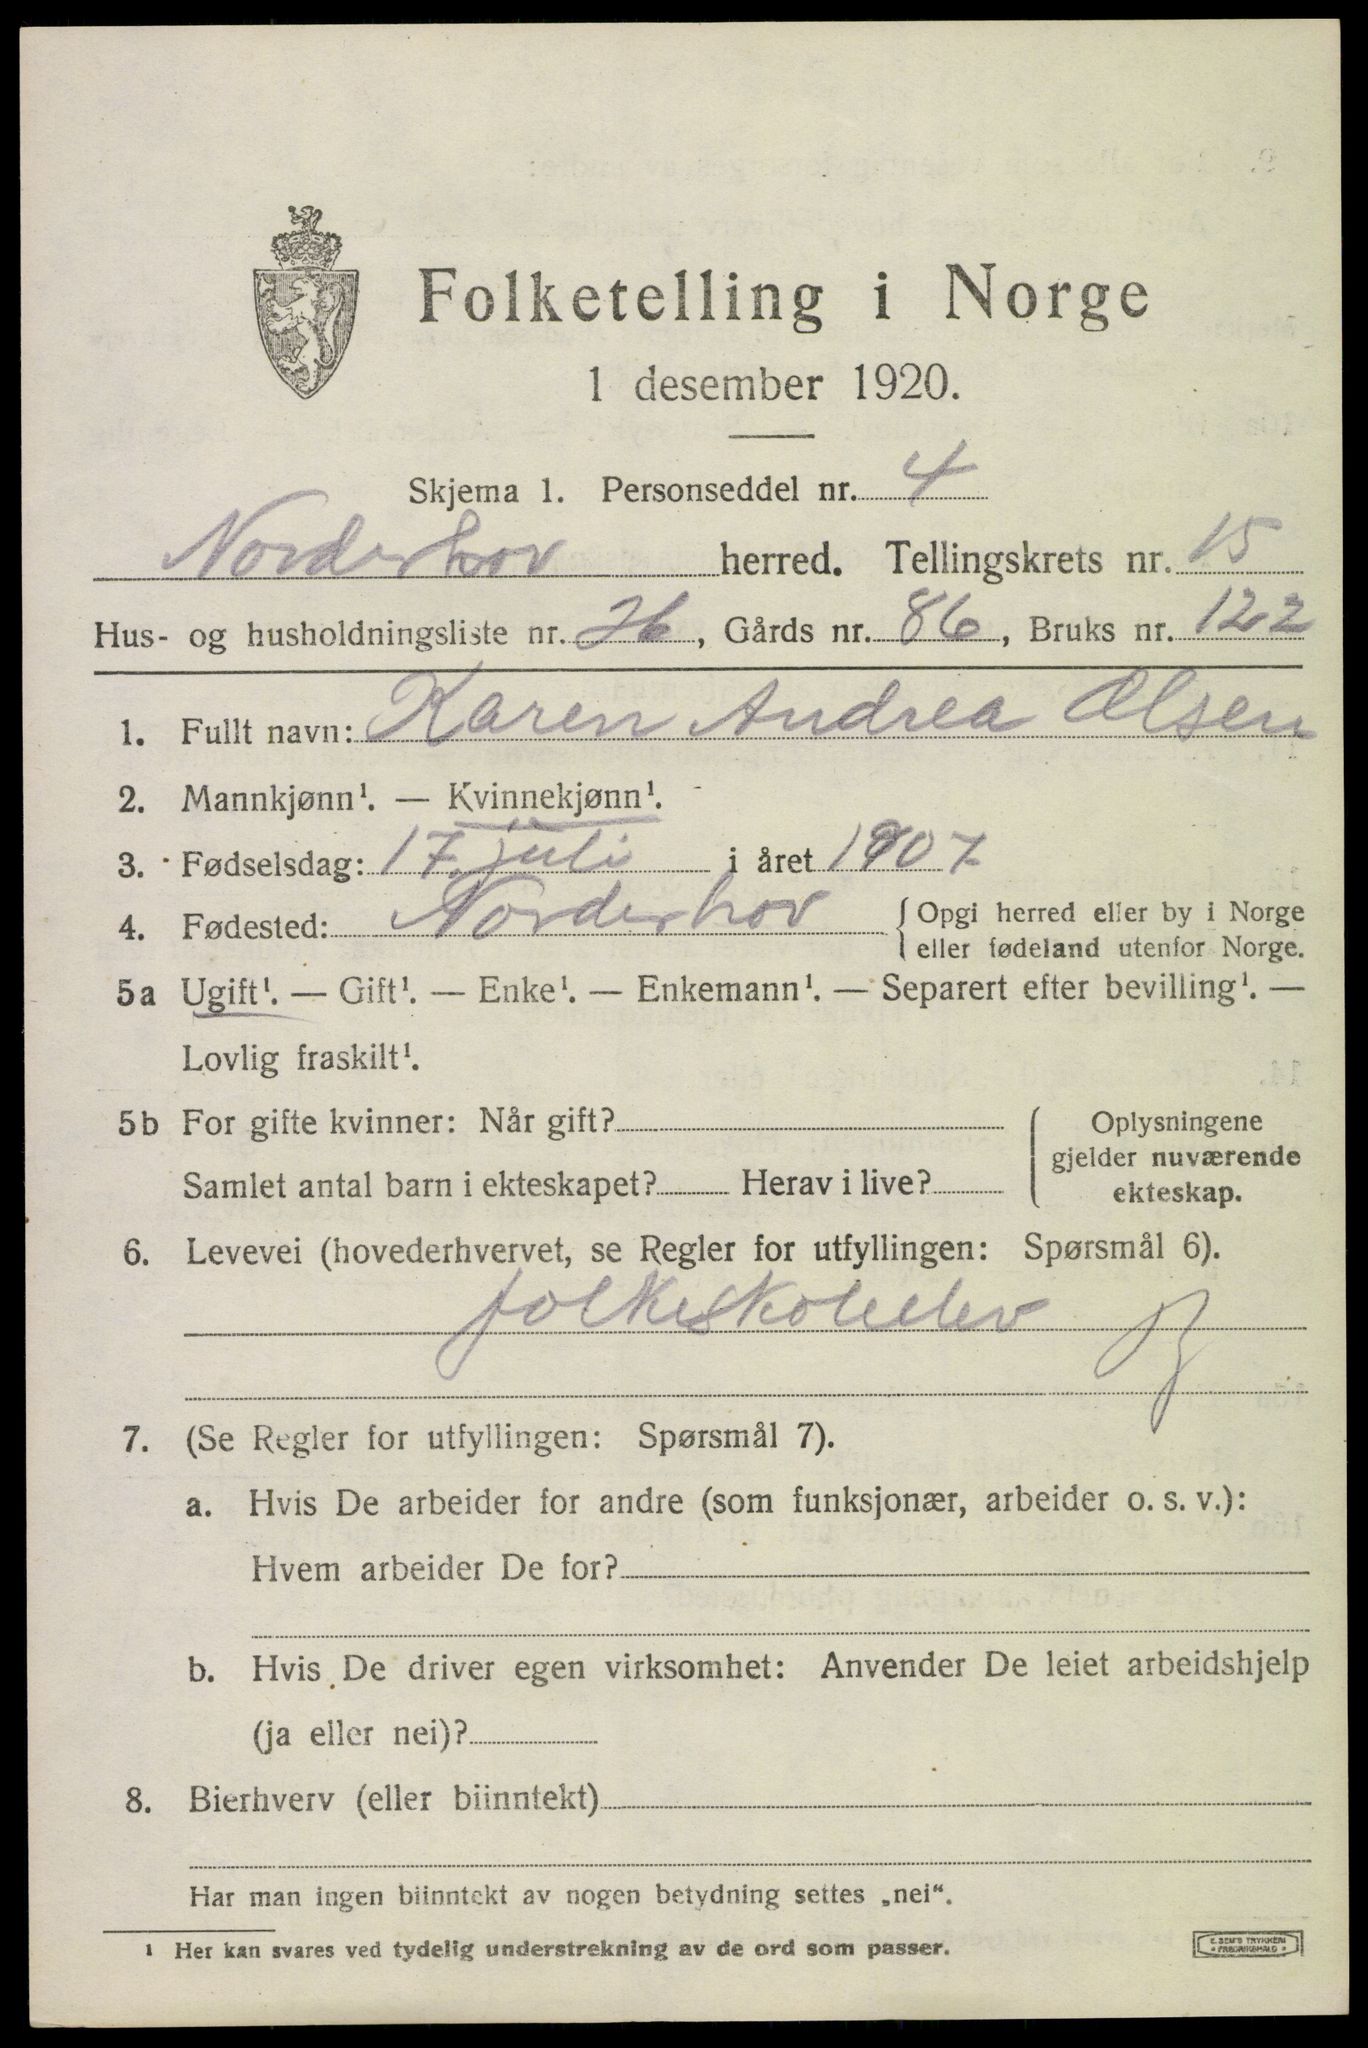 Folketelling i Norge
1 desember 1920.
Skjema 1. Personseddel nr. 4
Norderhov herred. Tellingskrets nr. 15
Hus- og husholdningsliste nr. 26, Gårds nr. 86, Bruks nr. 122
1. Fullt navn: Karen Andrea Olsen
2. Mannkjønn¹. — Kvinnekjønn¹.
3. Fødselsdag: 17. juli i året 1907
4. Fødested: Norderhov { Opgi herred eller by i Norge
eller fødeland utenfor Norge.
5a Ugift¹. — Gift¹. — Enke¹. — Enkemann¹. — Separert efter bevilling¹. —
Lovlig fraskilt¹.
5b For gifte kvinner: Når gift? { Oplysningene
gjelder nuværende
Samlet antal barn i ekteskapet? Herav i live? ekteskap.
6. Levevei (hovederhvervet, se Regler for utfyllingen: Spørsmål 6).
folkeskoleelev
7. (Se Regler for utfyllingen: Spørsmål 7).
a. Hvis De arbeider for andre (som funksjonær, arbeider o. s. v.):
Hvem arbeider De for?
b. Hvis De driver egen virksomhet: Anvender De leiet arbeidshjelp
(ja eller nei)?
8. Bierhverv (eller biinntekt)
Har man ingen biinntekt av nogen betydning settes „nei“.
¹ Her kan svares ved tydelig understrekning av de ord som passer.
E. SEM'S TRYKKERI
FREDRIKSHALD